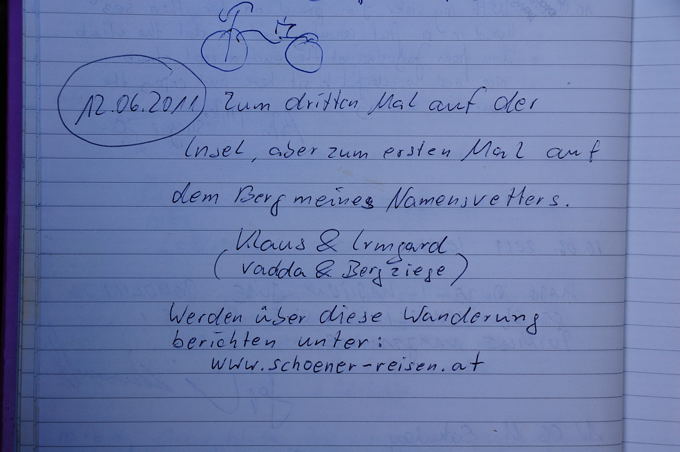 12.06.2011 Zum dritten Mal auf der
Insel, aber zum ersten Mal auf
dem Berg meines Namensvetters.
Klaus & Irmgard
(Vadda & Bergziege)
Werden über diese Wanderung
berichten unter:
www.schoener-reisen.at